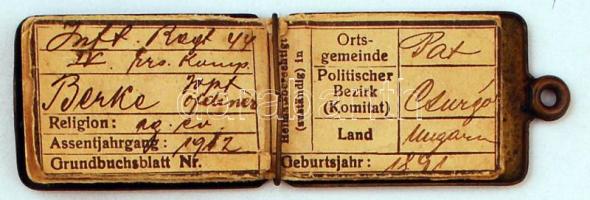 Inft. Regt 44
IV. Ers. Komp.
Berke Inft
Religion: ag. ev.
Assentjahrgang: 1912
Grundbuchsblatt Nr.
Heimatberechtigt (zuständig) in
Orts-
gemeinde Pat
Politischer
Bezirk
(Komitat) Csurgó
Land Ungarn
Geburtsjahr: 1891